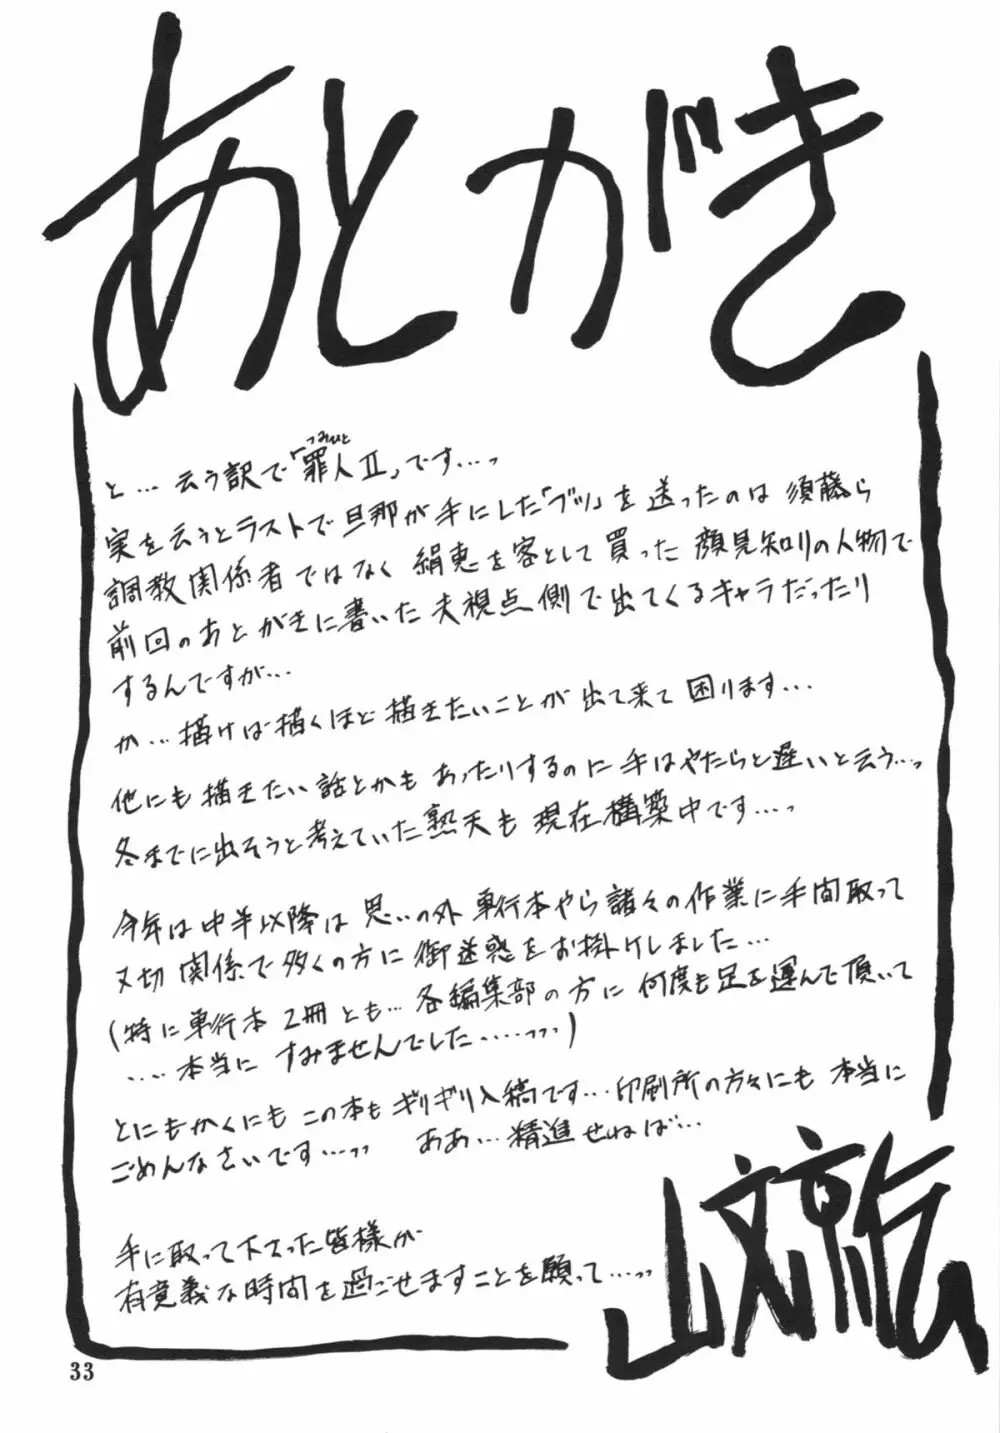 あとがき
と…云う訳で「罪人Ⅱ」です…っ
つみひと
実を云うとラストで旦那が手にした「ブツ」を送ったのは須藤ら
調教関係者ではなく絹恵を客として買った顔見知りの人物で
前回のあとがきに書いた夫視点側で出てくるキャラだったり
するんですが…
か…描けば描くほど描きたいことが出て来て困ります…
他にも描きたい話とかもあったりするのに手はやたらと遅いと云う…っ
冬までに出そうと考えていた熟天も現在構築中です…っ
今年は中半以降は思いの外単行本やら諸々の作業に手間取って
〆切関係で多くの方に御迷惑をお掛けしました…
(特に単行本2冊とも…各編集部の方に何度も足を運んで頂いて
‥‥本当にすみませんでした……っっ)
とにもかくにもこの本もギリギリ入稿です…印刷所の方々にも本当に
ごめんなさいです…っっ ああ…精進せねば…
手に取って下さった皆様が
有意義な時間を過ごせますことを願って…っっ
山文京伝
33